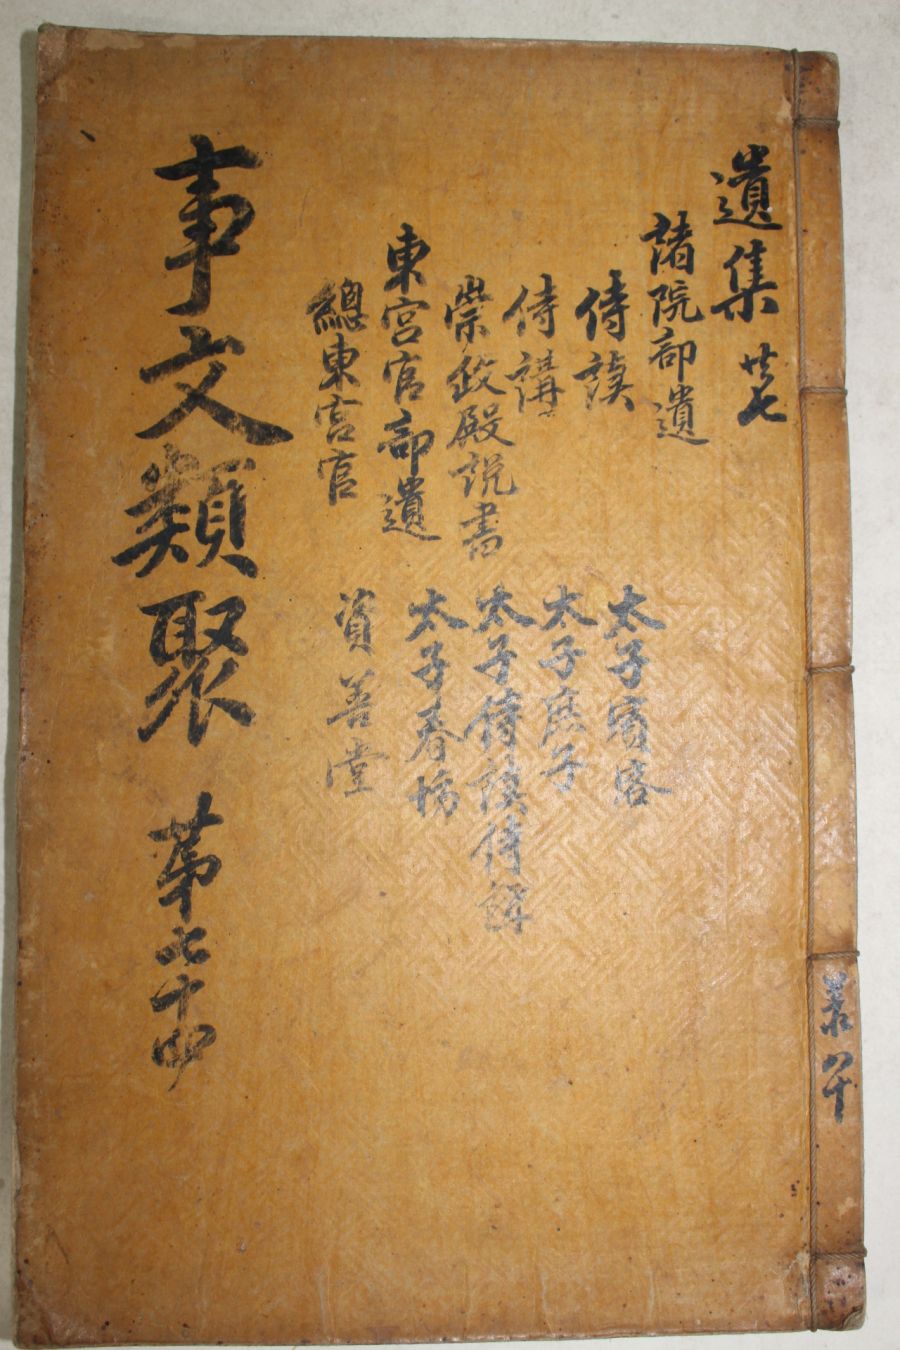 遺集 七
諸院部遺
侍讀
侍講
崇政殿說書
東宮官部遺
總東宮官
太子賓客
太子庶子
太子侍讀侍講
太子春坊
資善堂
事文類聚 第七十四
八十